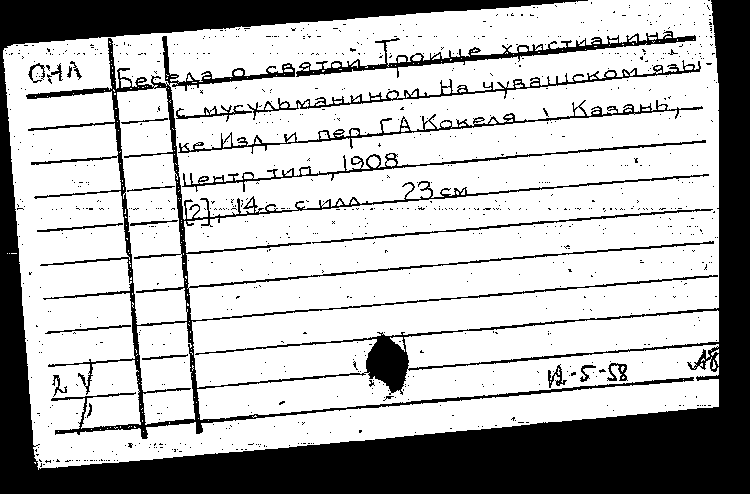 ОНА Беседа о святой Троице христианина
с мусульманином. На чувашском язы-
ке. Изд. и пер. Г.А. Кокеля. Казань,
Центр. тип., 1908.
[2], 14 с. с илл. 23 см.
12-5-58
2